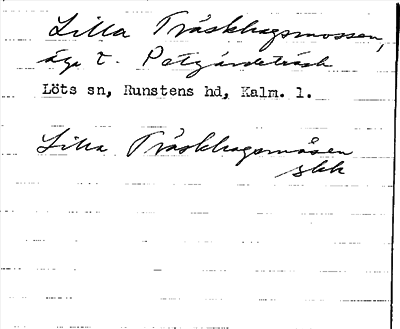 Lilla Träskhagsmossen,
äga t. Patgårdeträsk
Löts sn, Runstens hd, Kalm. l.
Lilla Träskhagsmåsen
skk